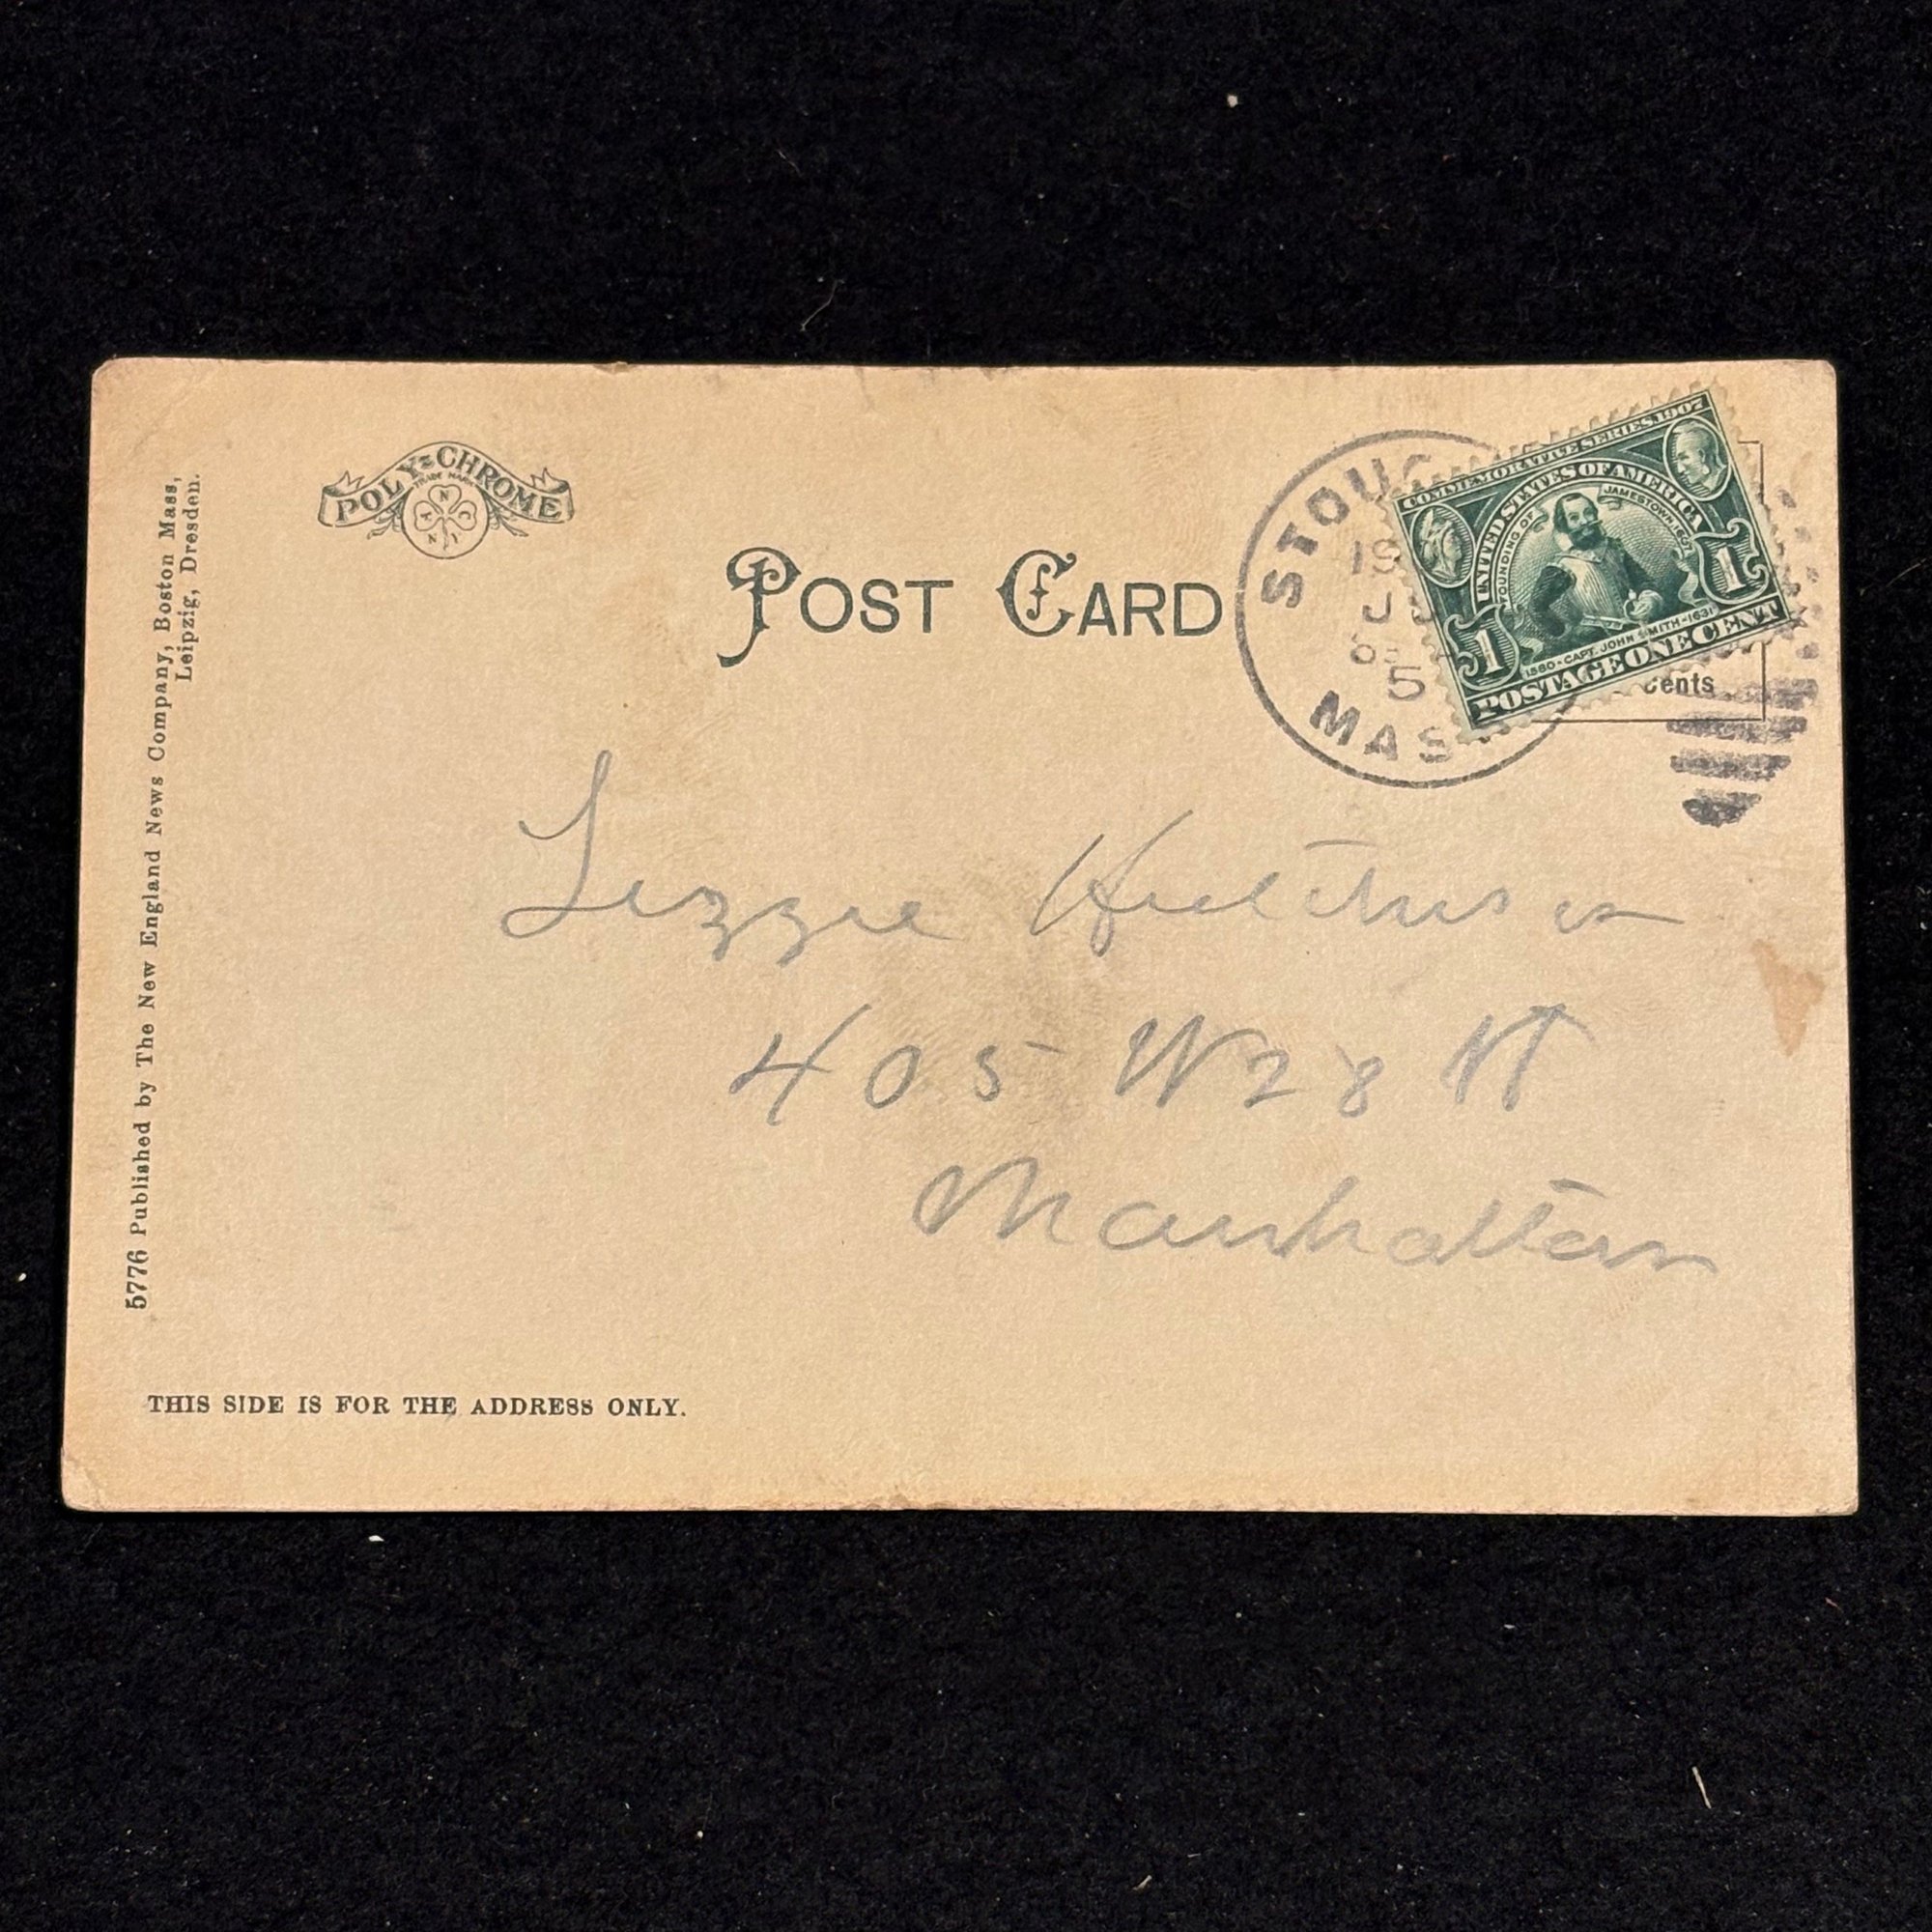 POLY-CHROME
TRADE MARK
A N C N Y
POST CARD
STOUG
19
J
5
MAS
COMMEMORATIVE SERIES 1907
UNITED STATES OF AMERICA
FOUNDING OF JAMESTOWN 1607
1580-CAPT. JOHN SMITH-1631
1 1
POSTAGE ONE CENT
Cents
Lizzie Hutchison
405 W 28 St
Manhattan
5776 Published by The New England News Company, Boston Mass,
Leipzig, Dresden.
THIS SIDE IS FOR THE ADDRESS ONLY.